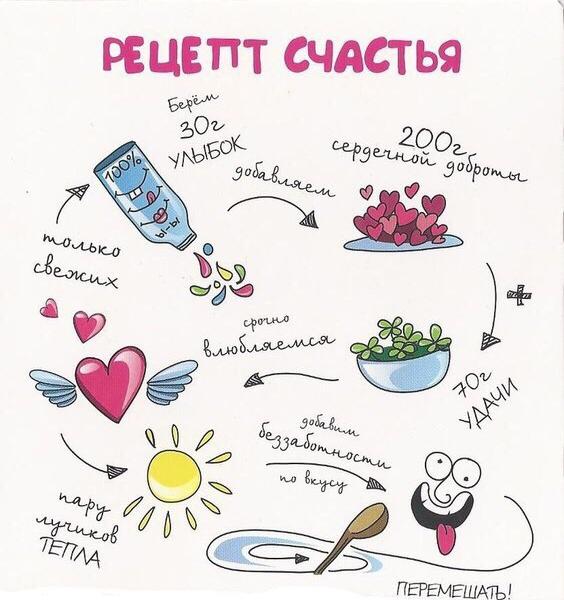 РЕЦЕПТ СЧАСТЬЯ
Берём
30г
УЛЫБОК
100%
Ы-Ы
добавляем
200г
сердечной доброты
+
70г
УДАЧИ
срочно
влюбляемся
только
свежих
пару
лучиков
ТЕПЛА
добавим
беззаботности
по вкусу
ПЕРЕМЕШАТЬ!